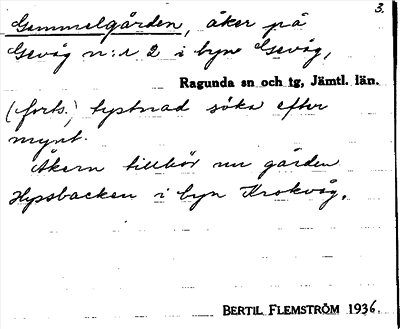 3.
Gammelgården, åker på
Gevåg n:r 2 i byn Gevåg,
Ragunda sn och tg, Jämtl. län.
(forts.) tystnad söka efter
mynt.
Åkern tillhör nu gården
Hypsbacken i byn Krokvåg.
BERTIL FLEMSTRÖM 1936.